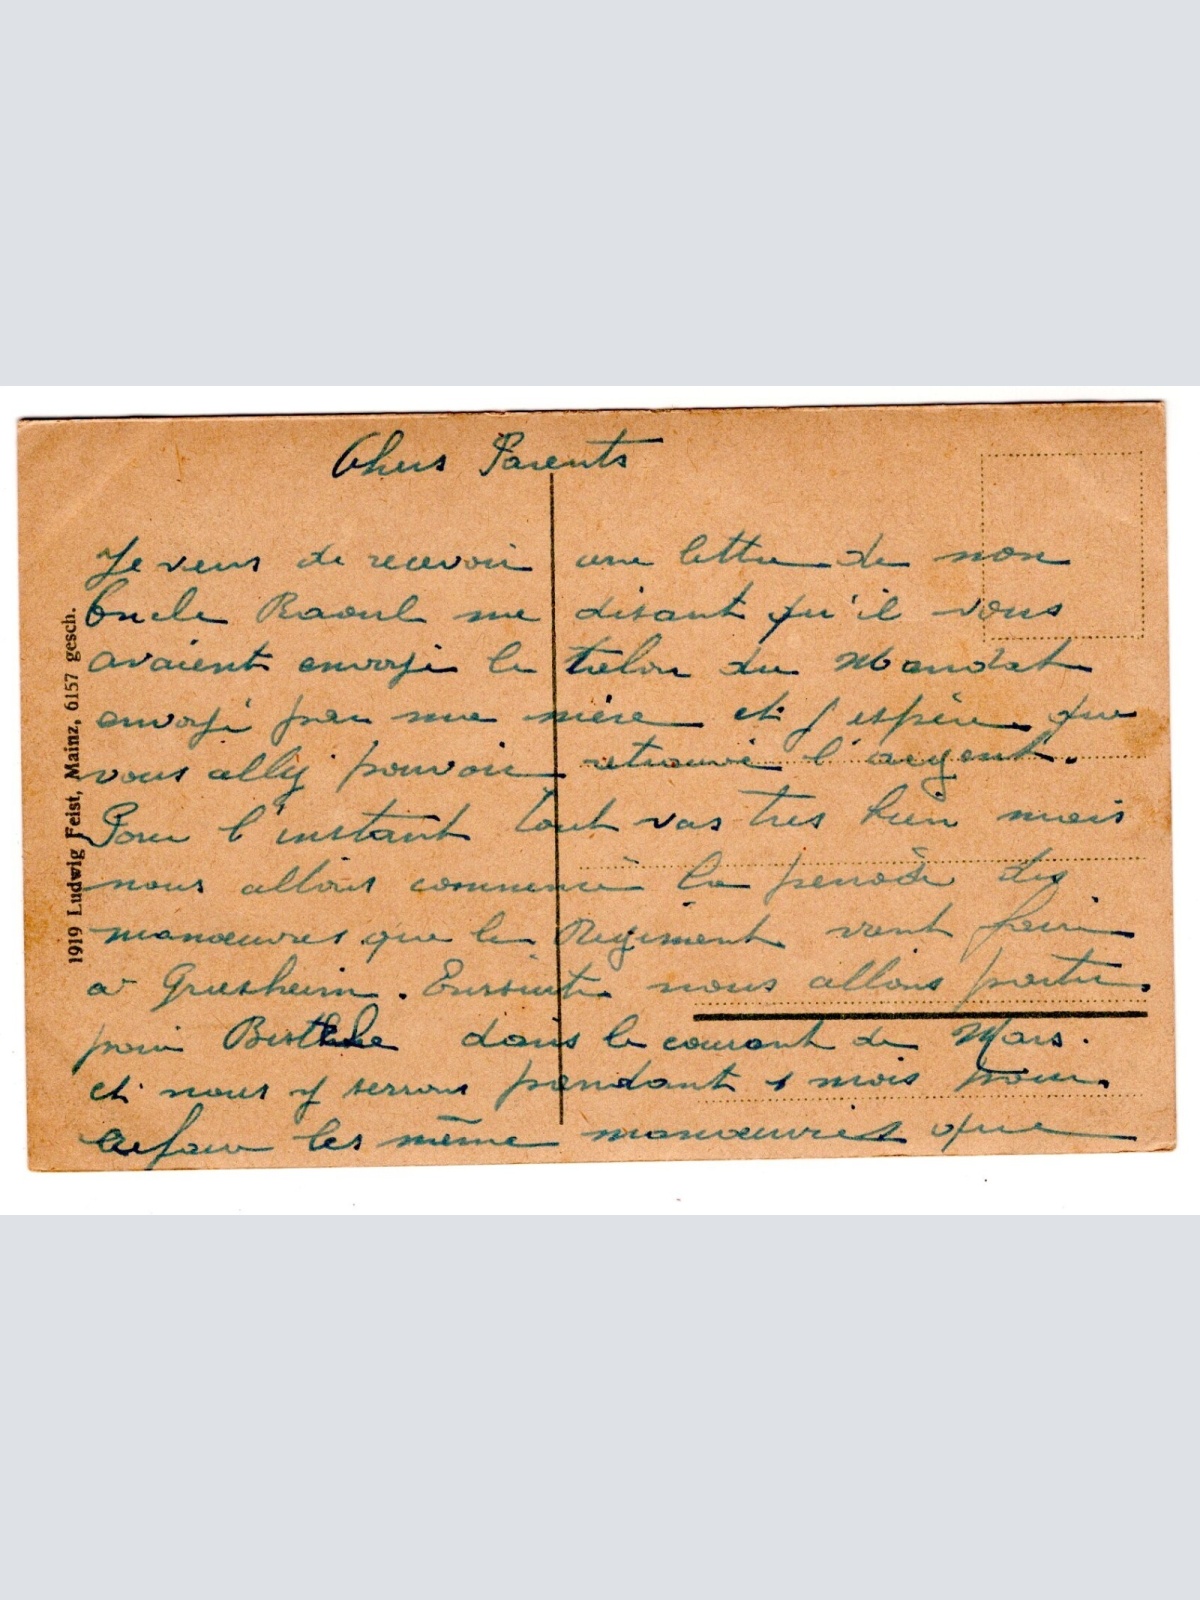 Chers Parents
Je viens de recevoir une lettre de mon
Oncle Raoul me disant qu'il vous
avaient envoyé le talon du Mandat
envoyé par ma mère et j'espère que
vous allez pouvoir retrouvé l'argent.
Pour l'instant tout vas très bien mais
nous allons commencé la période des
manœuvres que le Régiment vient faire
a Griesheim. Ensuite nous allons partir
pour dans le courant de Mars.
et nous y serrons pendant 1 mois pour
les même manœuvres que
1919 Ludwig Feist, Mainz, 6157 gesch.